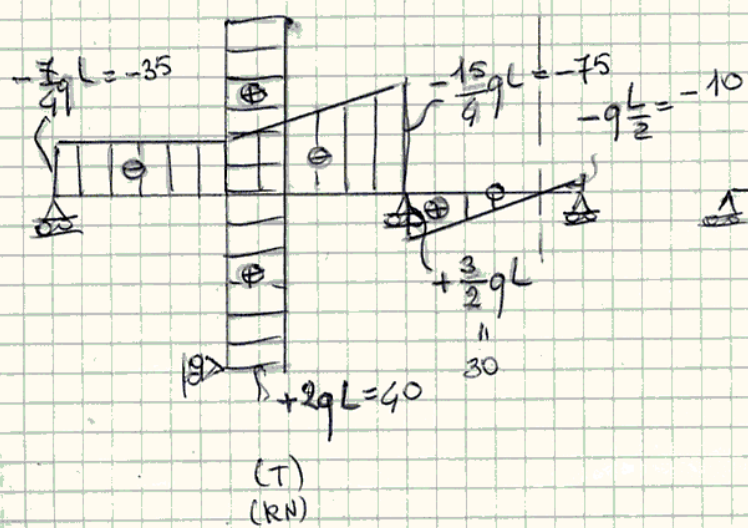 -7/4 qL = -35
⊕
-15/4 qL = -75
-q L/2 = -10
⊖
⊖
⊕ ⊖
⊕
+3/2 qL
"
30
+2qL=40
(T)
(KN)